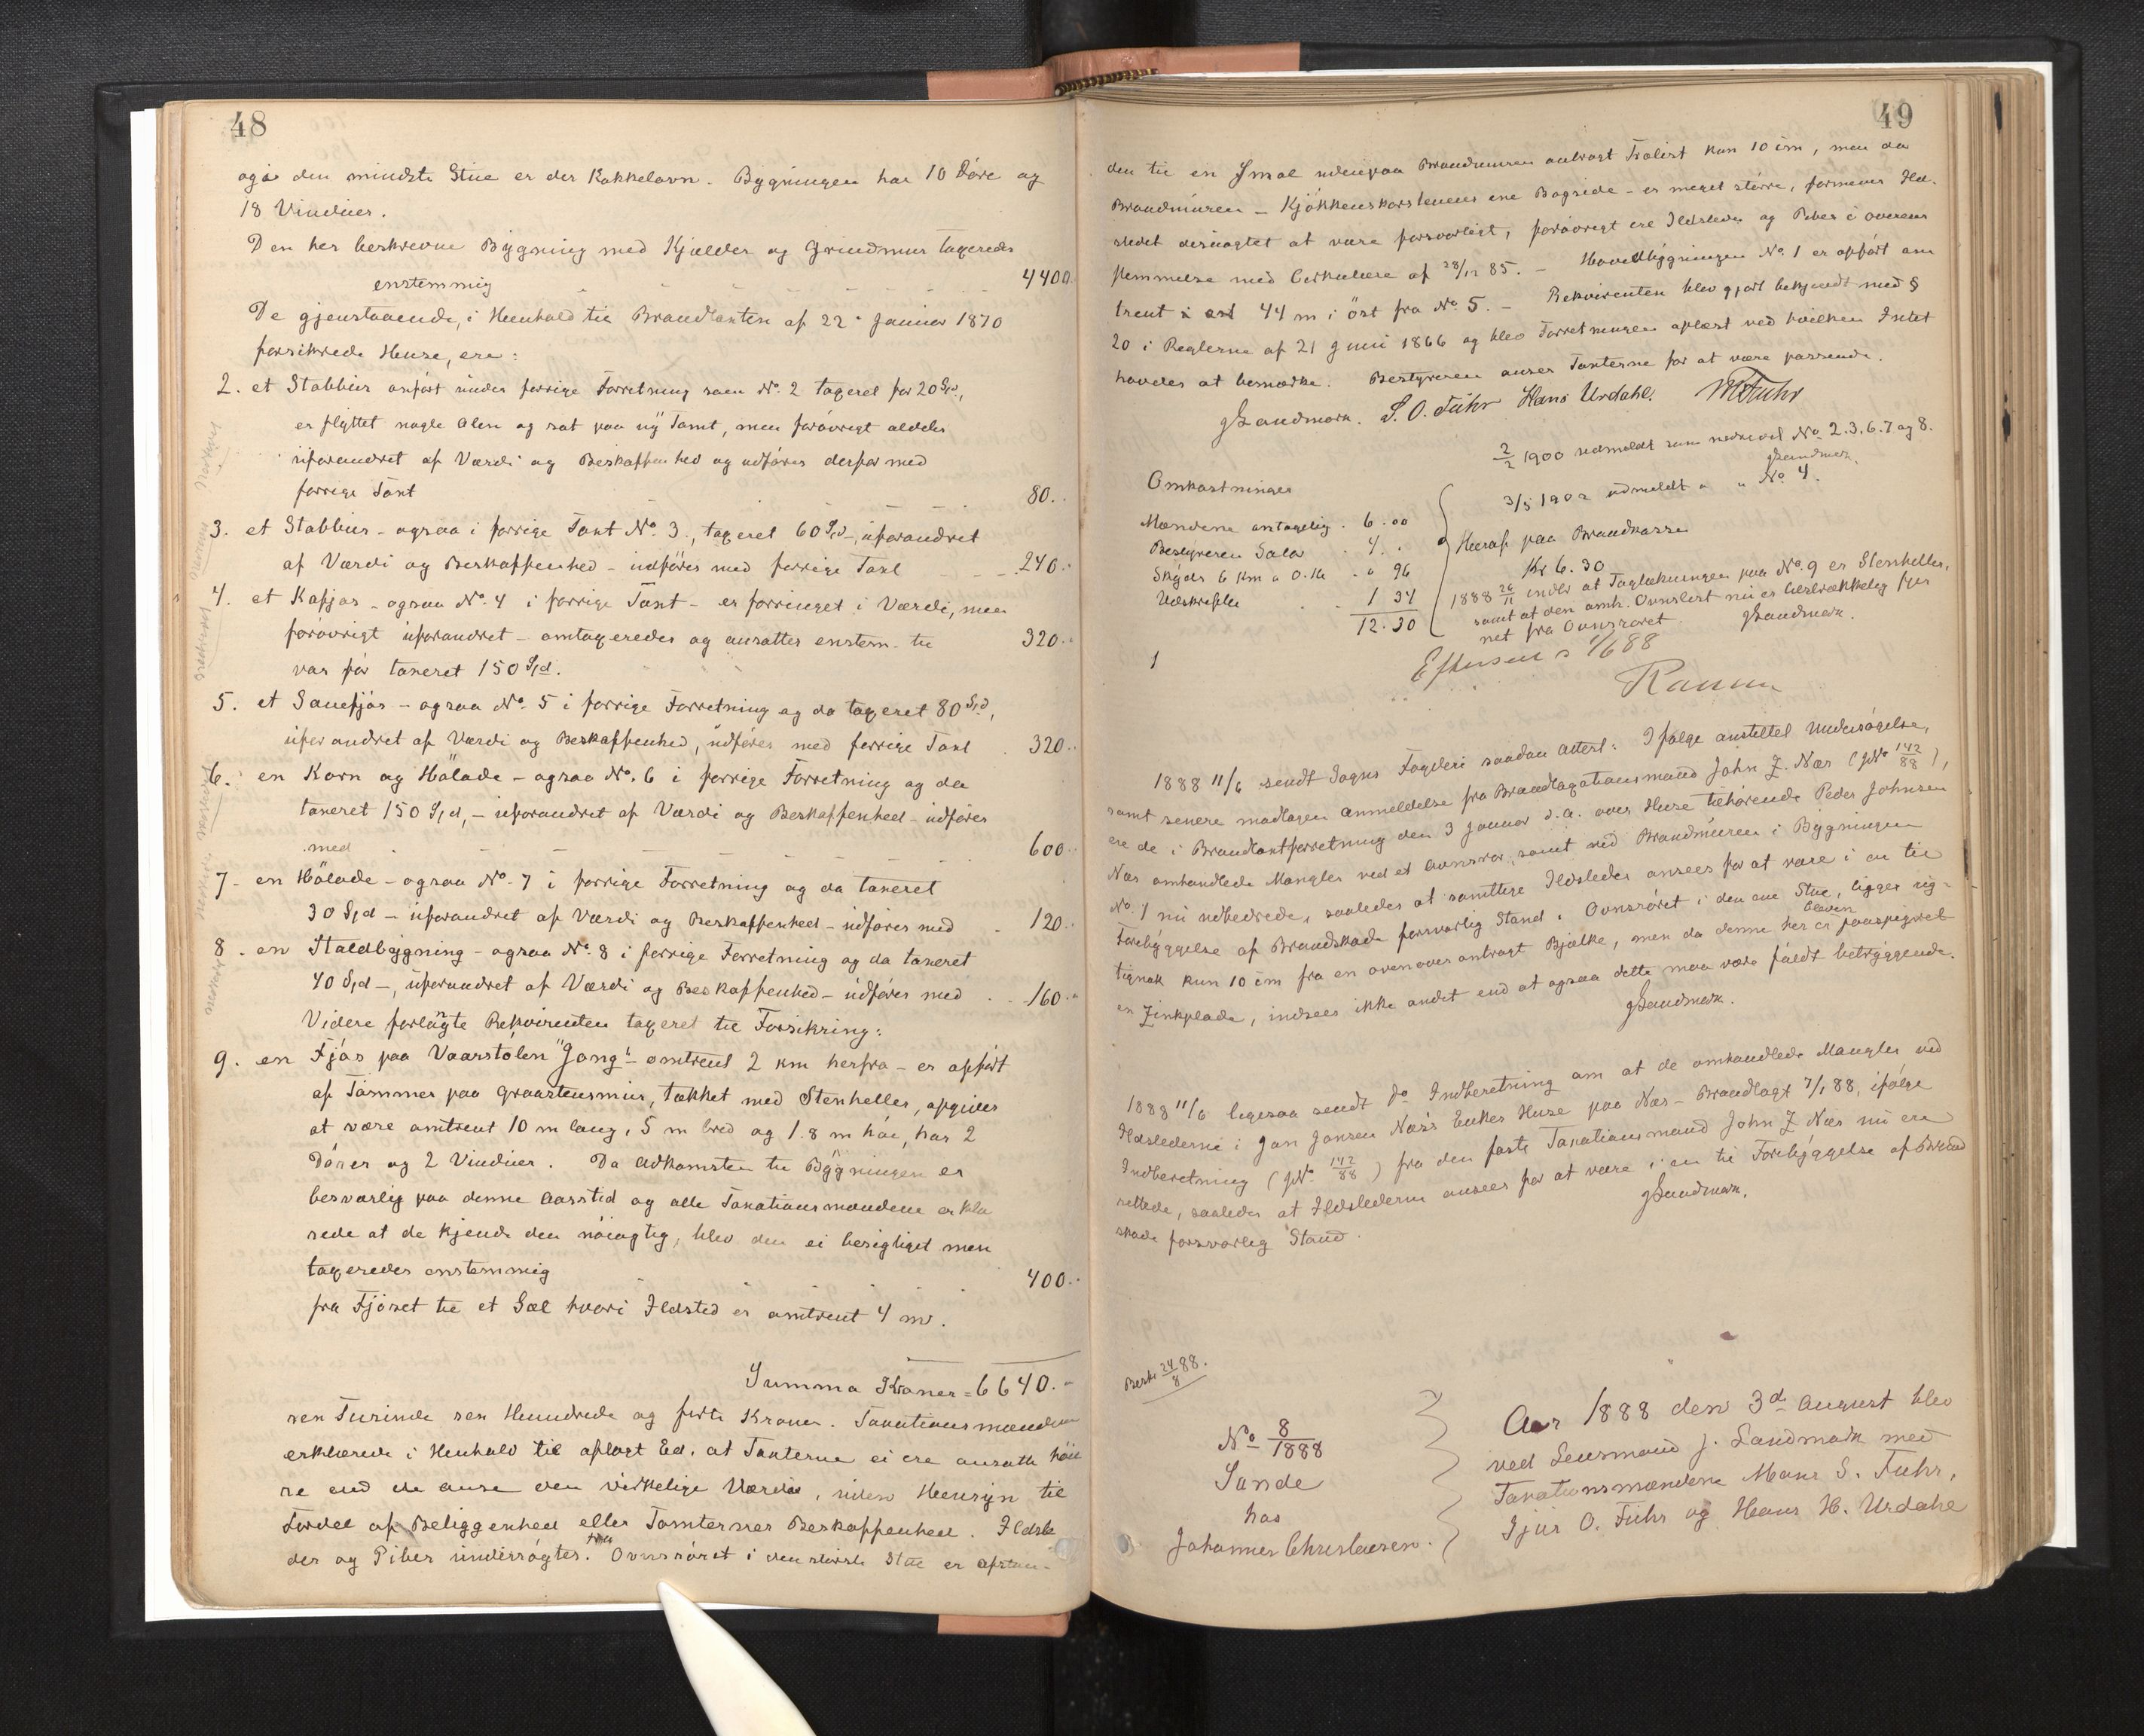 48
og i den mindste Stue er der Kakkelovn. Bygningen har 10 Döre og
18 Vinduer.
Den her beskrevne Bygning med Kjælder og Grundmur taxeredes
enstemmig 4400.
De gjenstaaende, i Henhold til Brandtaxten af 22. Januar 1870
forsikrede Huse, ere:
2. et Stabbur anfört under forrige Forretning som No. 2 taxeret for 20 Spd.,
er flyttet nogle Alen og sat paa ny Tomt, men forövrigt aldeles
uforandret af Værdi og Beskaffenhed og udföres derfor med
forrige Taxt 80.
3. et Stabbur - ogsaa i forrige Taxt No. 3., taxeret 60 Spd, uforandret
af Værdi og Beskaffenhed - udföres med forrige Taxt 240.
4. et Kofjös - ogsaa No. 4 i forrige Taxt - er forringet i Værdi, men
forövrigt uforandret - omtaxeredes og ansattes enstem. til 320.
var för taxeret 150 Spd.
5. et Sauefjös - ogsaa No. 5 i forrige Forretning og da taxeret 80 Spd,
uforandret af Værdi og Beskaffenhed, udföres med forrige Taxt 320.
6. en Korn og Hölade - ogsaa No. 6 i forrige Forretning og da
taxeret 150 Spd, - uforandret af Værdi og Beskaffenhed - udföres
med 600.
7. en Hölade - ogsaa No. 7 i forrige Forretning og da taxeret
30 Spd - uforandret af Værdi og Beskaffenhed - udföres med 120.
8. en Staldbygning - ogsaa No. 8 i forrige Forretning og da taxeret
40 Spd -, uforandret af Værdi og Beskaffenhed - udföres med 160.
Videre forlangte Rekvirenten taxeret til Forsikring:
9. en Fjös paa Vaarstölen "Jong" - omtrent 2 km herfra - er opfört
af Tömmer paa Graastensmur, tækket med Stenheller, opgives
at være omtrent 10 m lang, 5 m bred og 1.8 m höi, har 2
Dörer og 2 Vinduer. Da Adkomsten til Bygningen er
besværlig paa denne Aarstid og alle Taxationsmændene erklæ
rede at de kjende den nöiagtig, blev den ei besigtiget men
taxeredes enstemmig 400.
fra Fjöset til et Sæl hvori Ildsted er omtrent 4 m.
Summa Kroner = 6640.
sex Tusinde sex Hundrede og förti Kroner. Taxationsmændene
erklærede i Henhold til aflagt Ed, at Taxterne ei ere ansatte höie
re end de anse den virkelige Værdi, uden Hensyn til
Fordel af Beliggenhed eller Tomternes Beskaffenhed. Ildste
der og Piber undersögtes. Fra Ovnsröret i den störste Stue er afstan-
49
den til en Smal udenpaa Brandmuren anbragt Trælist kun 10 cm, men da
Brandmuren - Kjökkenskorstenens ene Bagside - er meget större, formenes Ild-
stedet desuagtet at være forsvarligt, forövrigt ere Ildsteder og Piber i overens
stemmelse med Cirkulære af 28/12 85. - Hovedbygningen No. 1 er opfört om
trent 44 m i öst fra No. 5. - Rekvirenten blev gjort bekjendt med §
20 i Reglerne af 21 Juni 1866 og blev Forretningen oplæst ved hvilken Intet
havdes at bemærke. Bestyreren anser Taxterne for at være passende.
JLandmark. S. O. Fuhr Hans Urdahl. MSFuhr
2/2 1900 udmeldt som nedrevet No. 2. 3. 6. 7 og 8.
JLandmark.
3/5 1902 udmeldt " " No 4.
Omkostninger
Mændene antagelig. 6.00
Bestyreren Salær 4.
Skyds 6 Km a 0.16 " 96
Udskrifter 1 34
12.30
Heraf paa Brandkassen
Kr 6.30
1888 26/11 indb. at Taglækningen paa No. 9 er Stenheller,
samt at den omh. Ovnslist nu er tilstrækkelig fjer
net fra Ovnsröret. JLandmark.
1
Efterseet 1/6 88
1888 11/6 sendt Sogns Fogderi saadan Attest: Ifölge anstillet Undersögelse,
samt senere modtagen Anmeldelse fra Brandtaxationsmand John Z. Næs (JNo 142/88),
ere de i Brandtaxtforretning den 3 Januar d.a. over Huse tilhörende Peder Johnsen
Næs omhandlede Mangler ved et Ovnsrör, samt ved Brandmuren i Bygningen
No. 1 nu udbedrede, saaledes at samtlige Ildsteder ansees for at være i en til
Forebyggelse af Brandskade forsvarlig Stand. Ovnsröret i den ene Stue, ligger rig-
tignok kun 10 cm fra en ovenover anbragt Bjælke, men da denne her er bleven paaspigret
en Zinkplade, indsees ikke andet end at ogsaa dette maa være fuldt betryggende.
JLandmark.
1888 11/6 ligesaa sendt Do Indberetning om at de omhandlede Mangler ved
Ildstederne i Jon Jonsen Næs's Enkes Huse paa Næs - Brandtaxt 7/1 88, ifölge
Indberetning (JNo. 142/88) fra den faste Taxationsmand John Z Næs nu ere
rettede, saaledes at Ildstederne ansees for at være i en til Forebyggelse af Brand
skade forsvarlig Stand. JLandmark.
Besk. 24/8 88.
No 8/1888
Sande
hos
Johannes Christensen.
Aar 1888 den 3d August blev
ved Lensmand J. Landmark med
Taxationsmændene Mons S. Fuhr,
Sjur O. Fuhr og Hans H. Urdahl